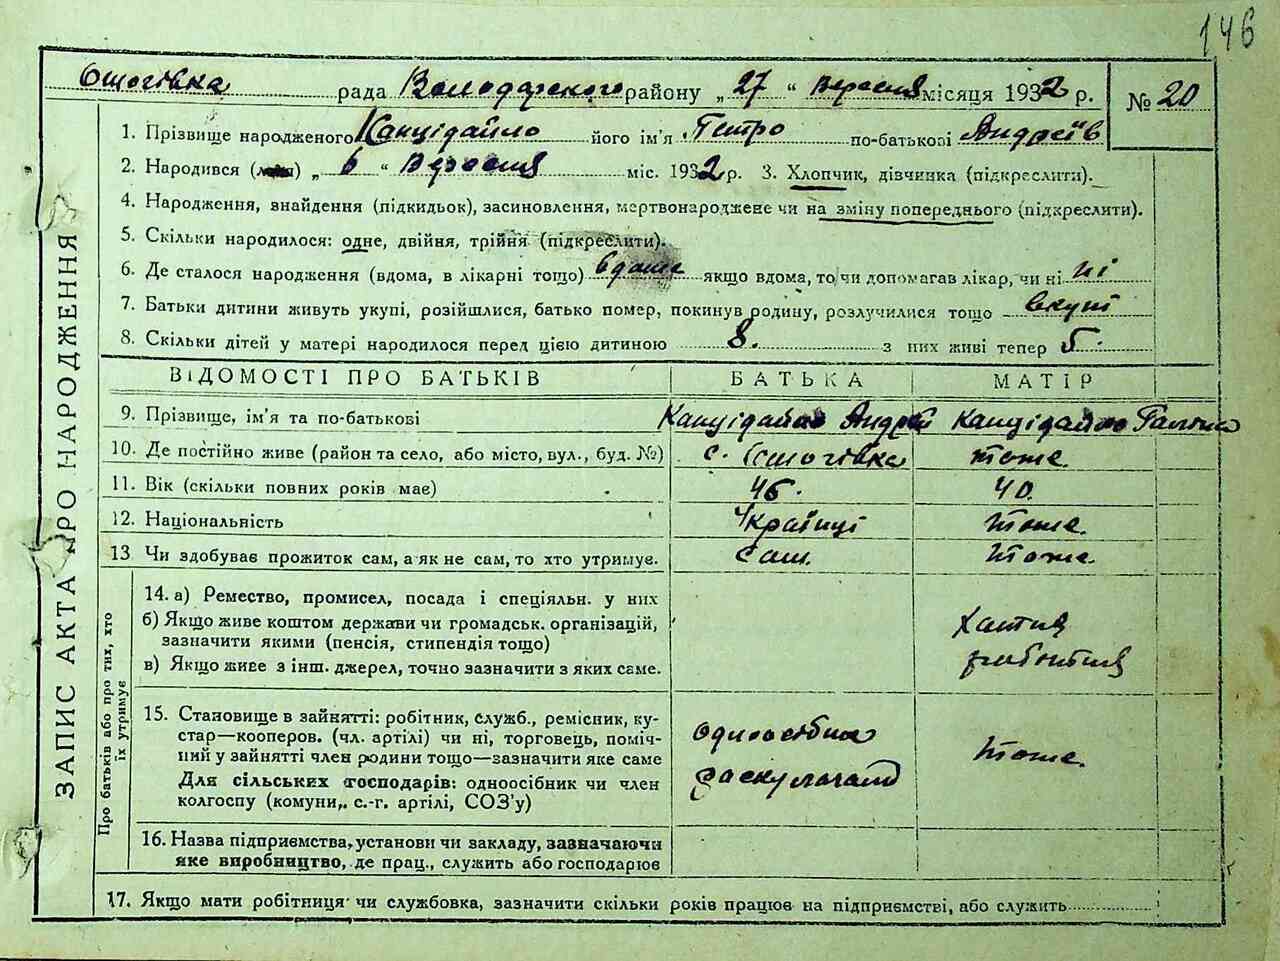 146
рада Володарского району „ 27 “ Вересня місяця 1932 р. № 20
1. Прізвище народженого Канцідайло його ім'я Петро по-батькові Андреїв
2. Народився (лась) „ 6 “ Вересня міс. 1932 р. 3. Хлопчик, дівчинка (підкреслити).
4. Народження, знайдення (підкидьок), засиновлення, мертвонароджене чи на зміну попереднього (підкреслити).
5. Скільки народилося: одне, двійня, трійня (підкреслити).
6. Де сталося народження (вдома, в лікарні тощо) вдома якщо вдома, то чи допомагав лікар, чи ні ні
7. Батьки дитини живуть укупі, розійшлися, батько помер, покинув родину, розлучилися тощо вкупі
8. Скільки дітей у матері народилося перед цією дитиною 8. з них живі тепер 5.
ЗАПИС АКТА ПРО НАРОДЖЕННЯ
ВІДОМОСТІ ПРО БАТЬКІВ БАТЬКА МАТІР
9. Прізвище, ім'я та по-батькові Канцідайло Андрій Канцідайло
10. Де постійно живе (район та село, або місто, вул., буд. №) с. тоже.
11. Вік (скільки повних років має) 46. 40.
12. Національність Україці тоже.
13 Чи здобував прожиток сам, а як не сам, то хто утримує. сам. тоже.
Про батьків або про тих, хто
їх утримує
14. а) Ремество, промисел, посада і спеціяльн. у них
б) Якщо живе коштом держави чи громадськ. організацій,
зазначити якими (пенсія, стипендія тощо)
в) Якщо живе з інш. джерел, точно зазначити з яких саме.
15. Становище в зайнятті: робітник, служб., ремісник, ку-
стар—кооперов. (чл. артілі) чи ні, торговець, поміч-
ний у зайнятті член родини тощо—зазначити яке саме
Для сільських господарів: одноосібник чи член
колгоспу (комуни,, с.-г. артілі, СОЗ'у)
тоже.
16. Назва підприємства, установи чи закладу, зазначаючи
яке виробництво, де прац., служить або господарює
17. Якщо мати робітниця чи службовка, зазначити скільки років працює на підприємстві, або служить